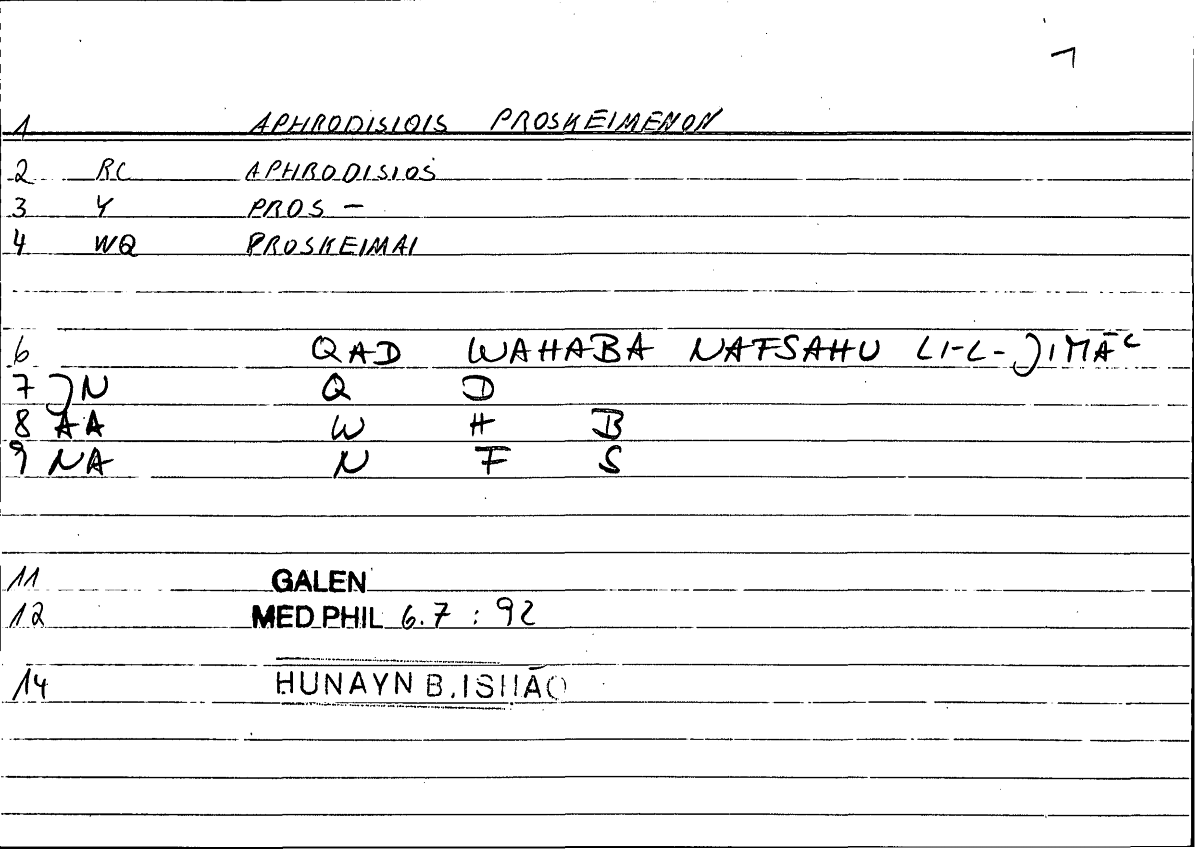 1
1 APHRODISIOIS PROSKEIMENON
2 RC APHRODISIOS
3 Y PROS -
4 WQ PROSKEIMAI
6 QAD WAHABA NAFSAHU LI-L-JIMĀʿ
7 JN Q D
8 AA W H B
9 NA N F S
11 GALEN
12 MED PHIL 6.7 : 92
14 HUNAYN B. ISHĀQ